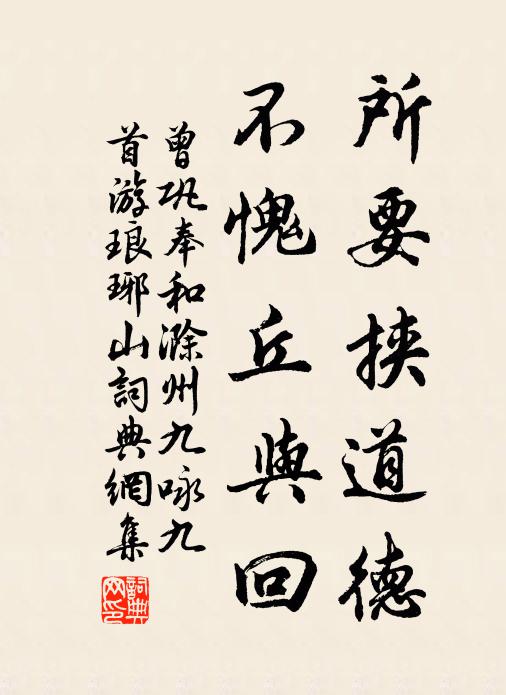 所要挟道德
不愧丘與回
曾巩奉和滁州九咏九
首游琅琊山詞典網集
詞典
网印